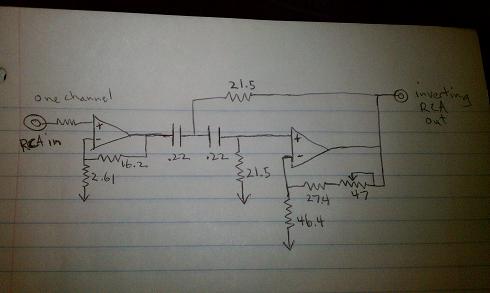 one channel
21.5
inverting
RCA
out
RCA in
+
16.2
2.61
.22
.22
21.5
+
-
27.4
47
46.4